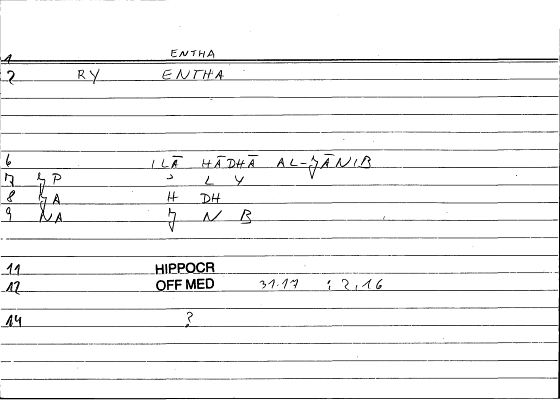 1 ENTHA
2 RY ENTHA
6 ILĀ HĀDHĀ AL-ǦĀNIB
7 ǦP ʾ L Y
8 ǦA H DH
9 NA Ǧ N B
11 HIPPOCR
12 OFF MED 31.17 : 2,16
14 ?